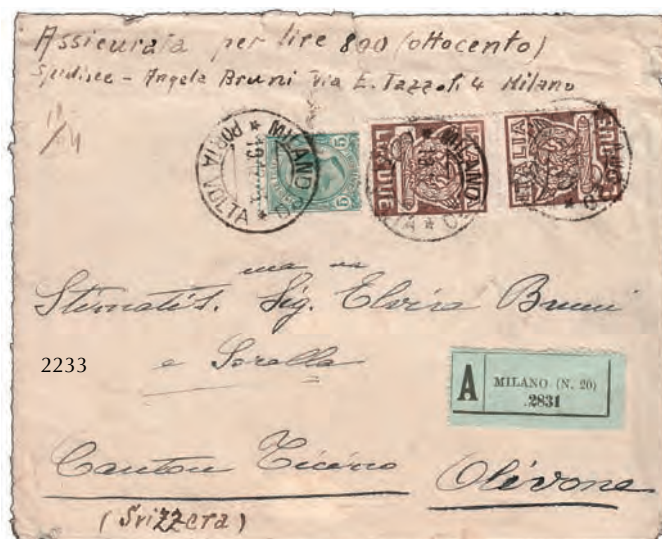 Assicurata per lire 800 (ottocento)
Spedisce - Angela Bruni Via E. Tazzoli 4 Milano
MILANO 20
PORTA VOLTA
5
LIRE DUE
MILANO 20
ITALIA
LIRE DUE
Stimatis. Sig. Elvira Bruni
e Sorella
2233
A
MILANO (N. 20)
2831
Canton Ticino Olivone
(Svizzera)